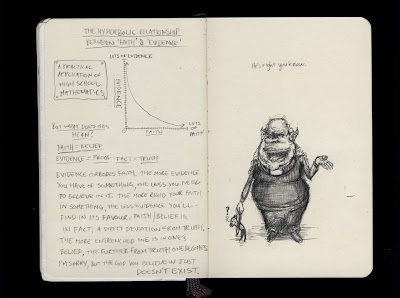 THE HYPERBOLIC RELATIONSHIP
BETWEEN 'FAITH' & 'EVIDENCE'
LOTS OF EVIDENCE
A PRACTICAL
APPLICATION OF
HIGH SCHOOL
MATHEMATICS
EVIDENCE
FAITH
LOTS
OF
FAITH
BUT WHAT DOES THIS
MEAN?
FAITH = BELIEF
EVIDENCE = PROOF = FACT = TRUTH
EVIDENCE ERODES FAITH, THE MORE EVIDENCE
YOU HAVE OF SOMETHING, THE LESS YOU NEED
TO BELIEVE IN IT. THE MORE RIGID YOUR FAITH
IN SOMETHING, THE LESS EVIDENCE YOU'LL
FIND IN ITS FAVOUR. FAITH/BELIEF IS
IN FACT, A DIRECT DEVIATION FROM TRUTH,
THE MORE ENTRENCHED ONE IS IN ONE'S
BELIEF, THE FURTHER FROM TRUTH ONE BECOMES.
I'M SORRY, BUT THE GOD YOU BELIEVE IN JUST
DOESN'T EXIST.
He's right you know.
?